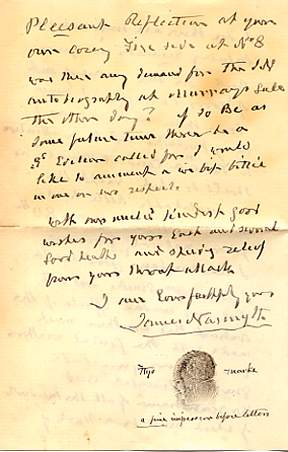 Pleasant Reflection at your
own cozey Fire side at No 8
was there any demand for the
autobiography at Murrays Sale
the other day? if So Be as
Some future time there be a
Edition called for I would
like to a wee bit
in one or two respects.
with our united kindest good
wishes for your and
Good health and speedy relief
from your throat attack
I am yours faithfully
James Nasmyth
His marke
a fine impression before letters